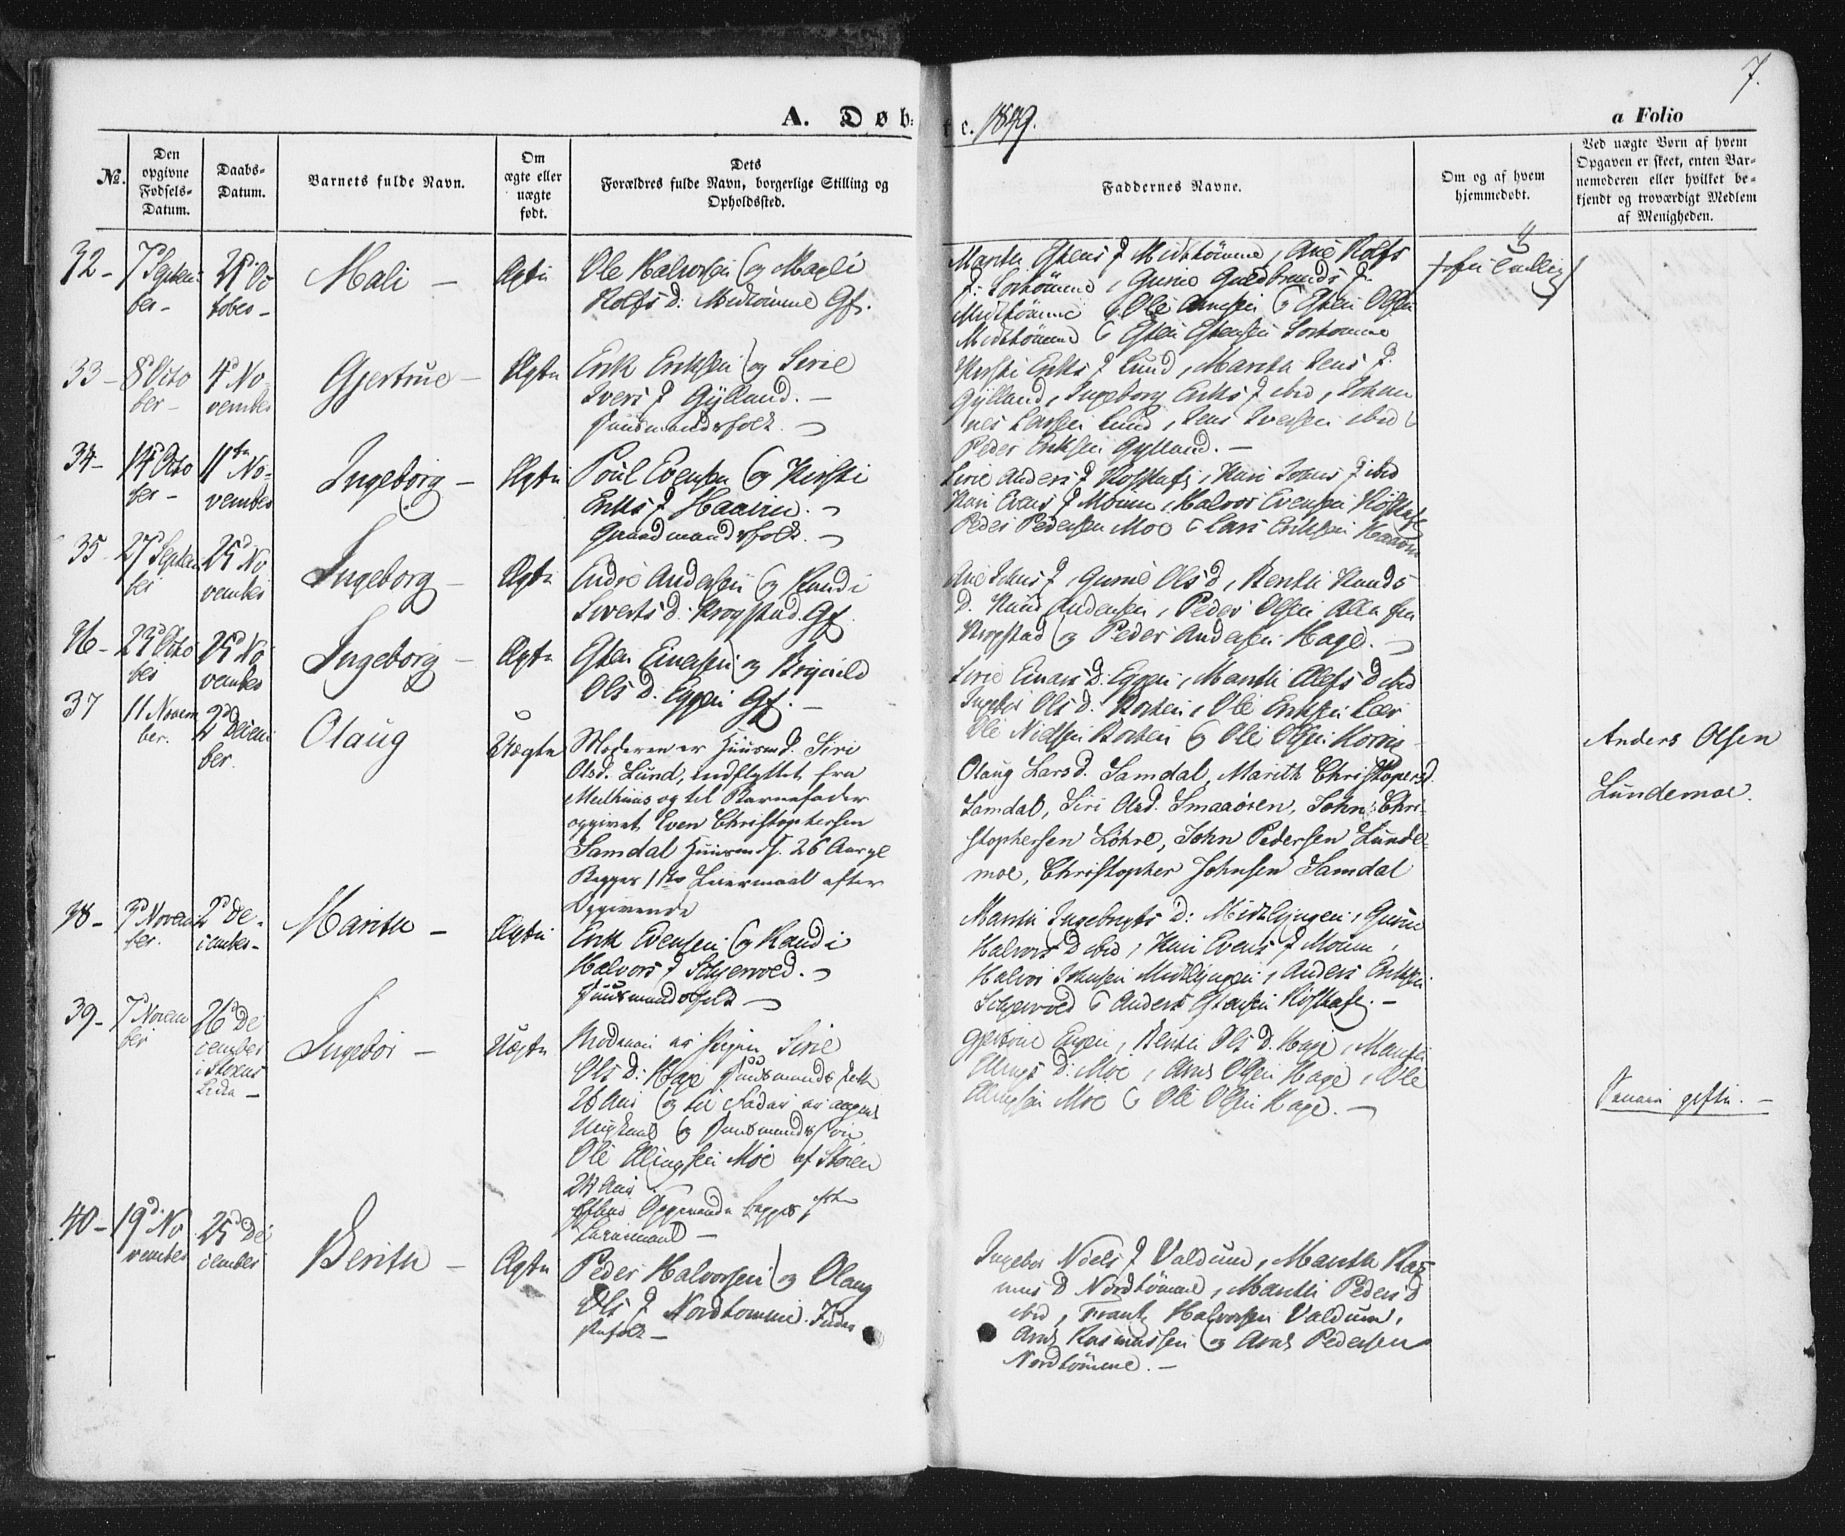 7.
A. Døb-
te. 1849.
a Folio
No.
Den opgivne Fødsels-Datum.
Daabs-Datum.
Barnets fulde Navn.
Om ægte eller uægte født.
Dets Forældres fulde Navn, borgerlige Stilling og Opholdssted.
Faddernes Navne.
Om og af hvem hjemmedøbt.
Ved uægte Børn af hvem Opgaven er skeet, enten Barnemoderen eller hvilket bekjendt og troværdigt Medlem af Menigheden.
32 – 7d Septem-
ber –
21d Oc
tober –
Mali –
Ægte
Ole Halvorsen og Magli
Rolfs d: Midtømme Gf.
Marith Estens d Midtømme, Ane Rolfs
d: Sortømme, Gurine Guldbrands d:
Midtømme, Ole Arnesen, Esten Olsen
Midtømme & Esten Estensen Sortømme
33 – 8d Octo
ber –
4d No-
vember
Gjertrue –
Ægte
Erik Eriksen og Serie
Ivers d Gylland. –
Huusmandsfolk. –
Kirsti Eriks d Lund, Maritha Jens d:
Gylland, Ingeborg Eriks d ibid, Johan
nes Larssen Lund, Jens Iversen ibid &
Peder Eriksen Gylland. –
34 – 14d Octo
ber –
11te No-
vember
Ingeborg –
Ægte
Poul Evensen og Kirsti
Eriks d Haaven. –
Gaardmandsfolk. –
Serie Anders d Kosstafe, Kari Johns d ibid
Kari Evens d Moum, Halvor Evensen
Peder Pedersen Moe & Lars Eriksen Haaven
35 – 27d Septem
ber
25d No
vember
Ingeborg –
Ægte
Endre Andersen og Randi
Siverts d: Krogstad Gf
Ane Johns d, Gurine Ols d, Berithe Knuds
D. Knud Andersen, Peder Olsen Alle fra
Krogstad og Peder Andersen Hage. –
36 – 23d Octo
ber
25d No
vember
Ingeborg –
Ægte
Esten Einersen og Brynild
Ols D: Eggen Gf. –
Serie Einars D: Eggen, Marith Olefs D ibid
Ingebor Ols D. Rosten, Ole Eriksen Lær
Ole Nielsen Rosten & Ole Olsen
37
11 Novem
ber.
2d Decem
ber.
Olaug
Uægte
Moderen er Huusmd. Siri
Olsd. Lund, indflyttet fra
Meelhuus og til Barnefader
opgivet Even Christophersen
Samdal Huusmds. 26 Aar gl.
Begges 1ste Leiermaal efter
Opgivende
Olaug Larsd. Samdal, Marith Christophersd.
Samdal, Siri Olsd. Smaaøien, John Chri-
stophersen Løhre, John Pedersen Lunde-
moe, Christopher Johnsen Samdal
Anders Olsen
Lundemoe.
38 – 3d Novem
ber.
2d De-
cember –
Marithe –
Ægte
Erik Evensen og Randi
Halvors d Schjerwold. –
Huusmandsfolk –
Marith Ingebrigts d: Midtlyngen, Gurine
Halvors D ibid, Kari Evens d Moum,
Halvor Johnsen Midtlyngen, Anders Eriksen
Schjerwold & Anders Estensen Kosstafe. –
39 – 7d Novem
ber
26d De
cember
i Støren
Ingebor –
Uægte
Moderen er Pigen Serie
Ols D: Hage Huusmands
26 Aar og til Fader er angivet
Ungkarl og Huusmandssøn
Ole Ellingsen Moe af Støren
24 Aar
Opgivende begges
Leiermaal –
Gjertrue Engen, Berithe Ols D. Hage, Marith
Ellings D: Moe, Arnt Olsen Hage, Ole
Ellingsen Moe & Ole Olsen Hage. –
40 – 19d No
vember
25d De
cember
Berithe –
Ægte
Peder Halvorsen og Olaug
Ols d Nordtømme. Inder
stsfolk –
Ingebor Niels d Valdum, Marith Ras
mus D Nordtømme, Marith Peders D
ibid, Frantz Halvorsen Valdum,
Arnt Rasmussen og Arnt Pedersen
Nordtømme. –